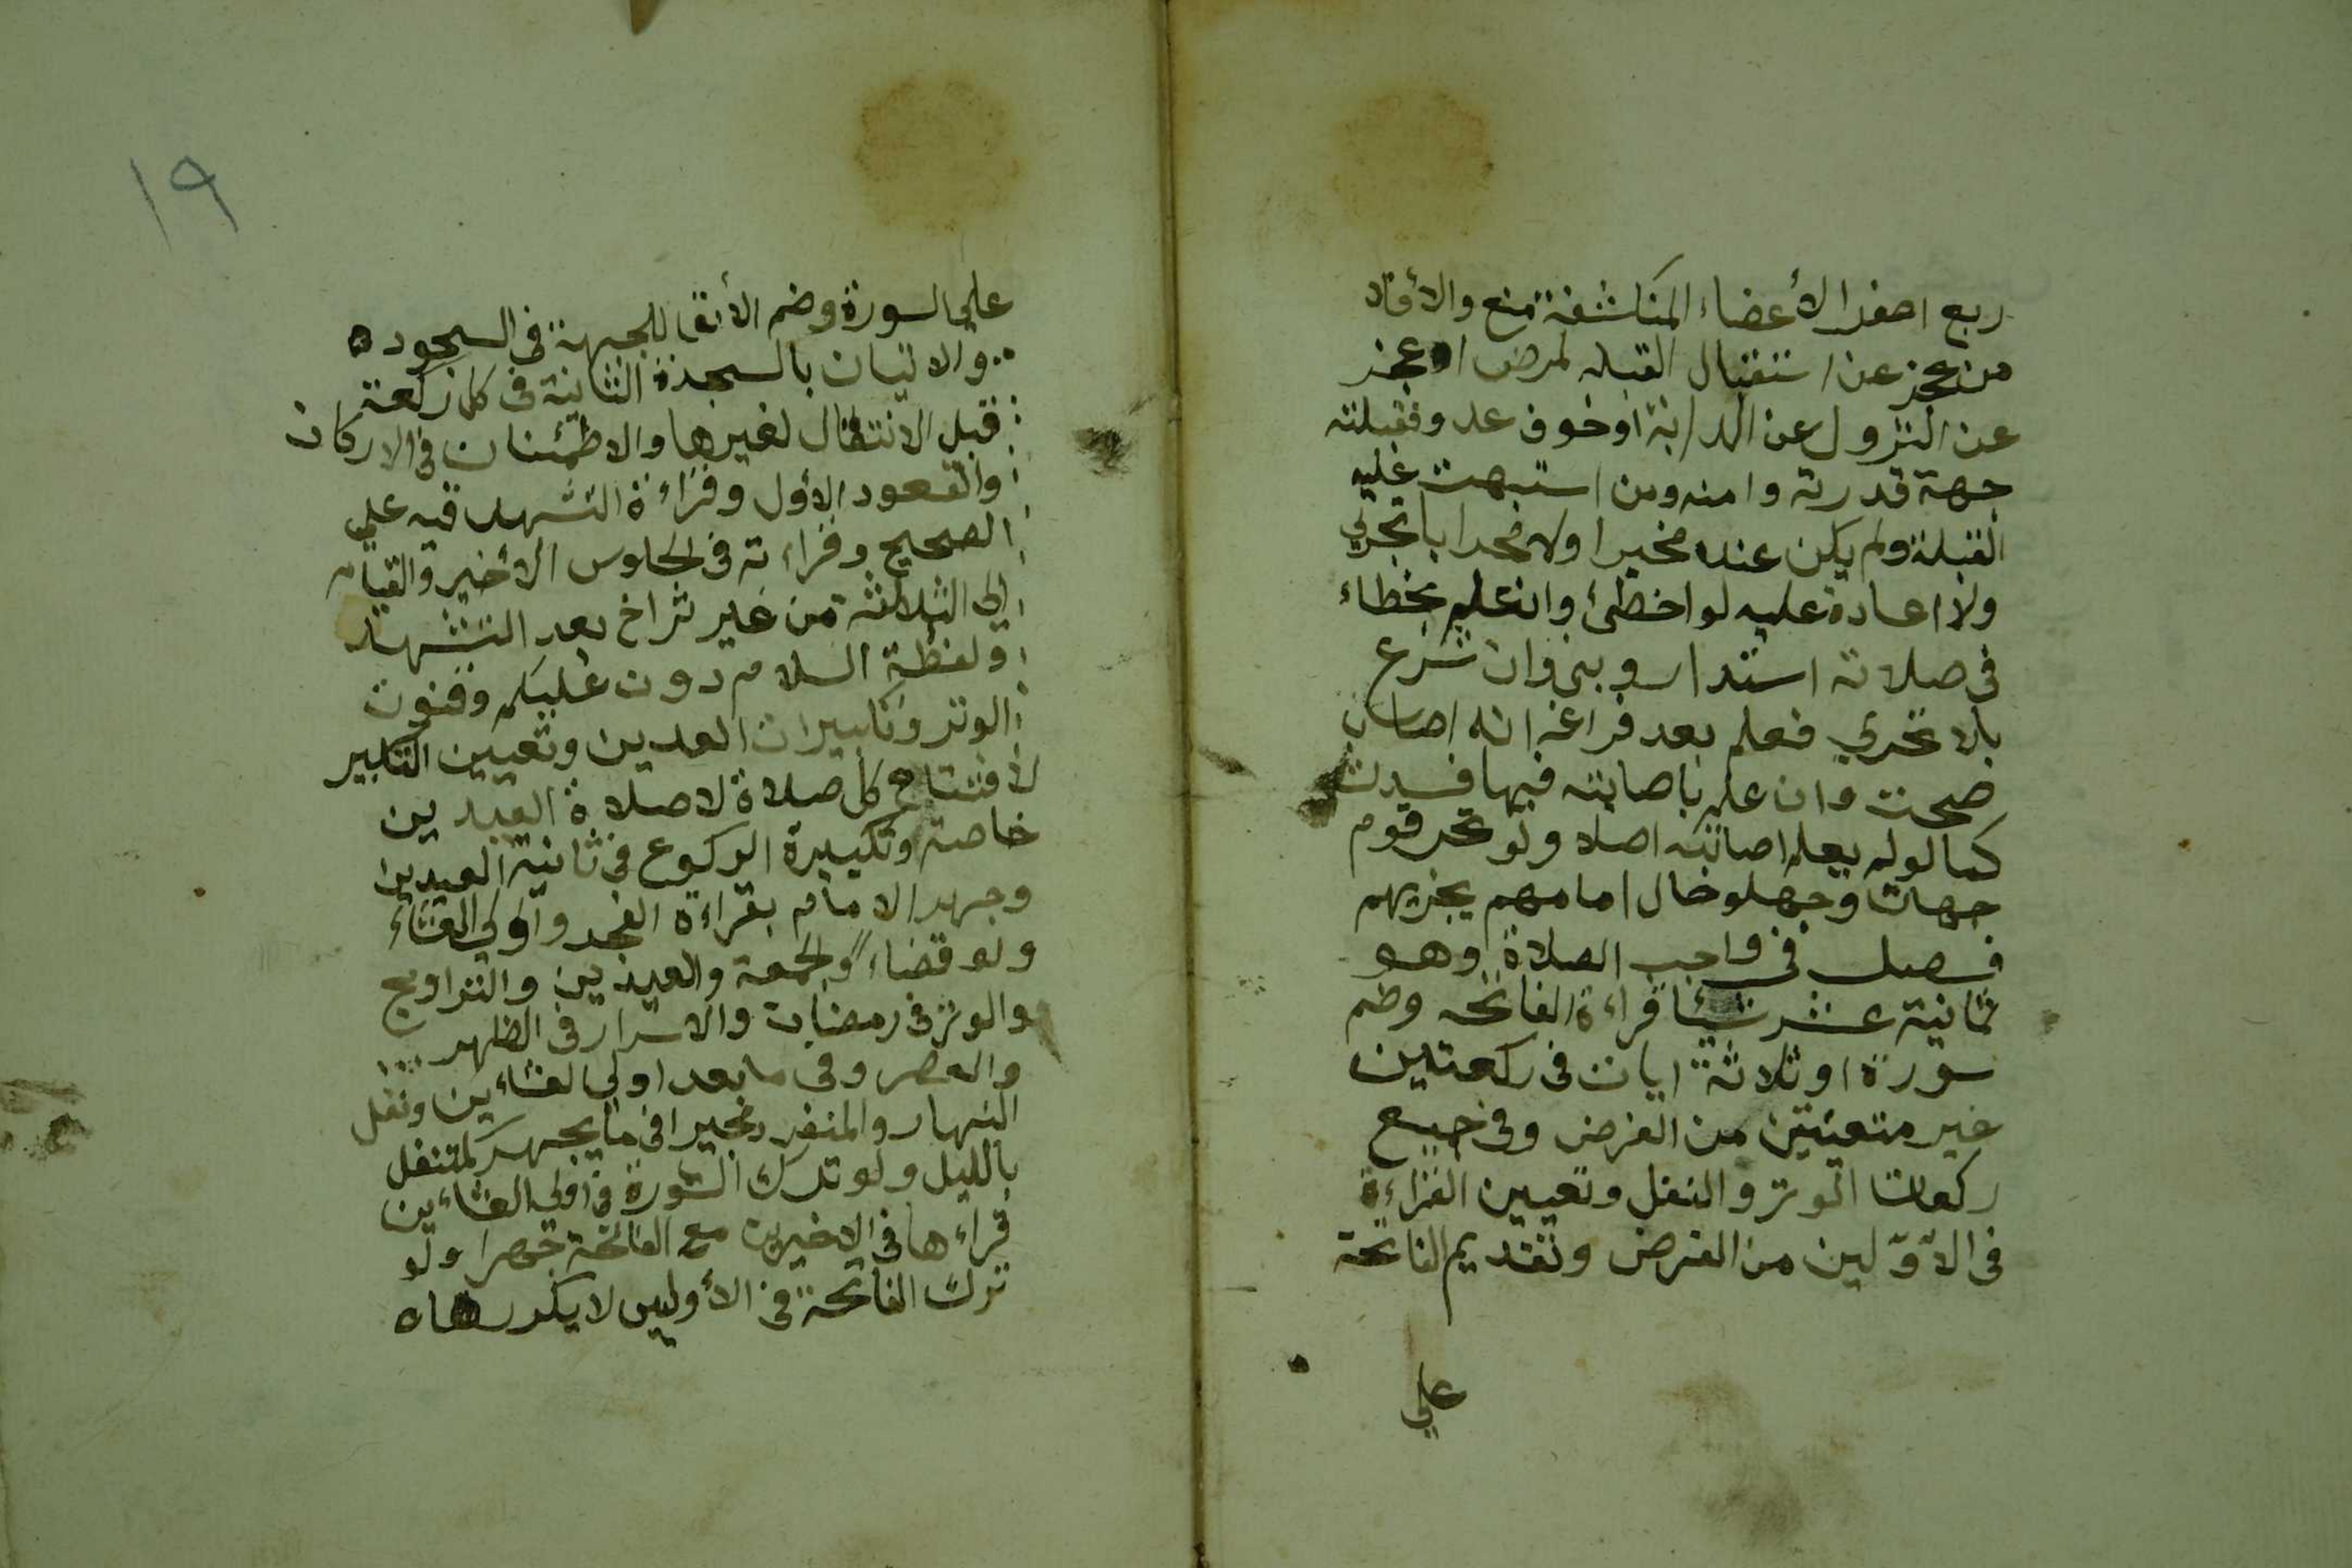 ربع اصغر الأعضاء المنكاشفة منع والأفلا
من عجز عن استقبال القبله لمرض او عجز
عن النزول عن الدابة او خوف عدو فقبلته
جهة قدرته وامنه ومن استبهت عليه
القبلة ولم يكن عنده مخبرا ولا محرابا تحري
ولا اعادة عليه لو اخطئ وان علم بخطاء
في صلاته استدار وبنى وان شرع
بلا تحري فعلم بعد فراغه انه اصاب
صحت وان علم باصابته فيها فسدت
كما لو لم يعلم اصابته اصلا ولو تحر قوم
جهات وجهلو حال امامهم يجزيهم
فصل في واجب الصلاة وهو
ثمانية عشر شيئا قراءة الفاتحه وظم
سورة او ثلاثة ايات في ركعتين
غير متعينتين من الفرض وفي جميع
ركعات الوتر والنفل وتعيين القراءة
في الأوّلين من الفرض وتقديم الفاتحة
علي
١٩
علي السورة وضم الأنف للجبهة في السجود ه
والاتيان بالسجدة الثانية في كل ركعة
قبل الانتقال لغيرها والاطمئنان في الاركان
والقعود الأول وقراءة التشهد فيه علي
الصحيح وقراءته في الجلوس الأخير والقيام
الي الثلاثة من غير تراخ بعد التشهد
ولفظة السلام دون عليكم وقنوت
الوتر وتكبيرات العدين وتعيين التكبير
لافتتاح كل صلاة لا صلاة العيدين
خاصة وتكبيرة الركوع في ثانية العيدين
وجهر الامام بقراءة الفجر واولي العشاء
ولو قضاء والجمعة والعيدين والتراويح
والوتر في رمضان والاسرار في الظهر
والعصر وفي ما بعد اولي العشاءين ونفل
النهار والمنفرد مخيرا في ما يجهر كمتنفل
بالليل ولو ترك السورة في اولي العشاءين
قراءها في الاخيرين مع الفاتحة جهرا ولو
ترك الفاتحة في الأوليين لا يكررها ه